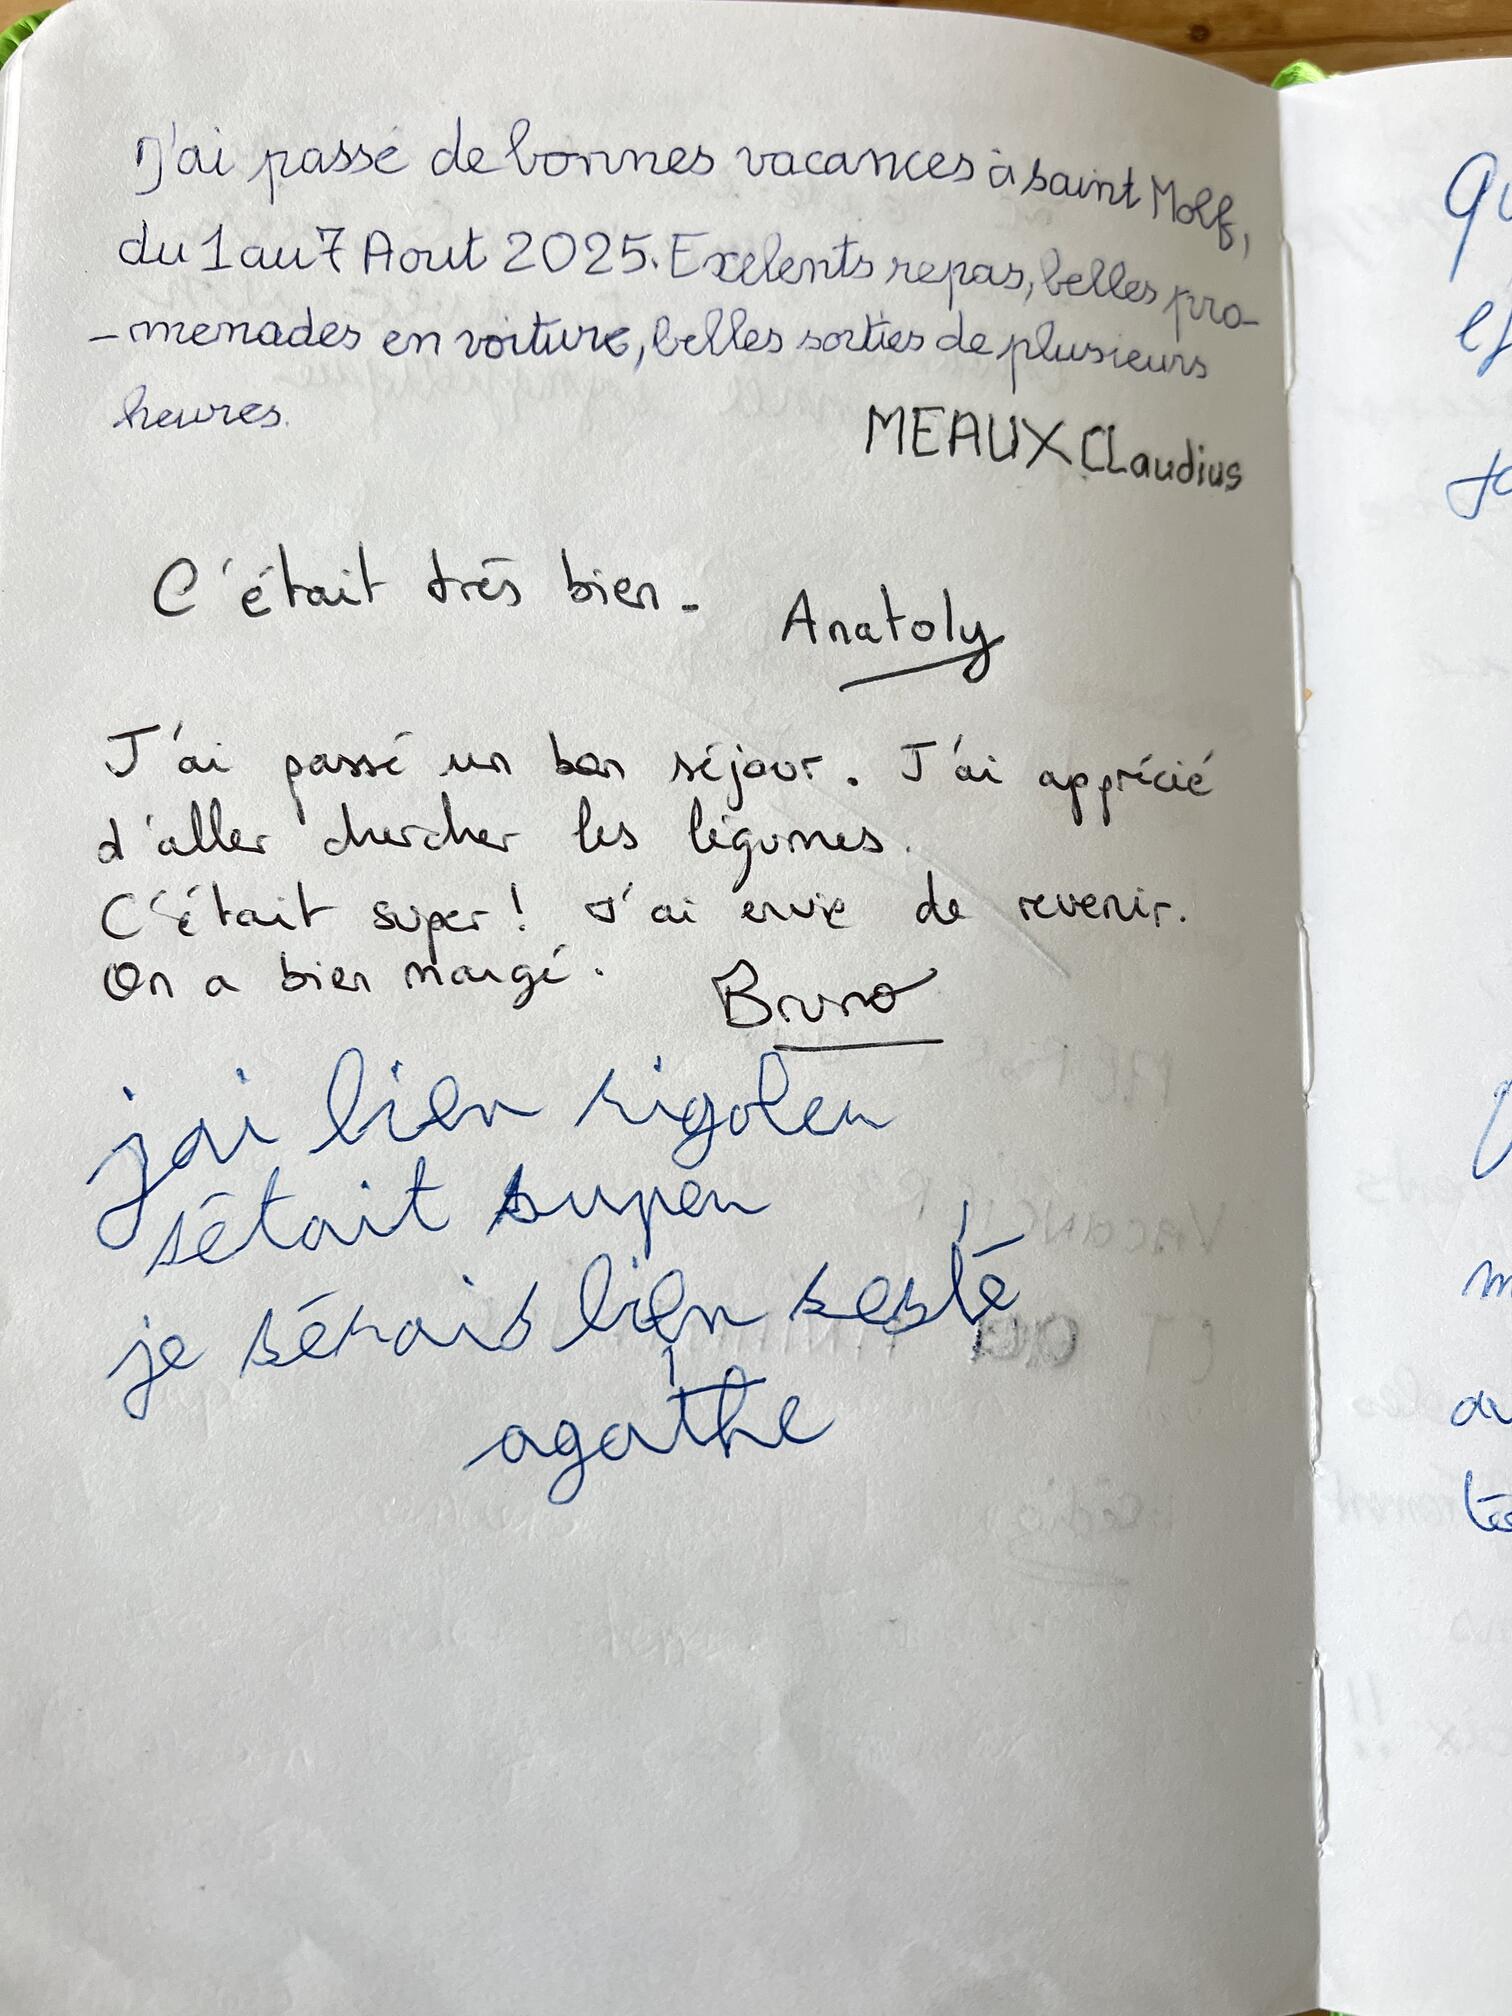 J'ai passé de bonnes vacances à saint Molf,
du 1 au 7 Aout 2025. Exelents repas, belles pro-
-menades en voiture, belles sorties de plusieurs
heures.
MEAUX CLaudius
C'était très bien.
Anatoly
J'ai passé un bon séjour. J'ai apprécié
d'aller chercher les légumes.
C'était super! J'ai envie de revenir.
On a bien mangé.
Bruno
jai bien rigoler
sétait super
je sérais bien resté
agathe